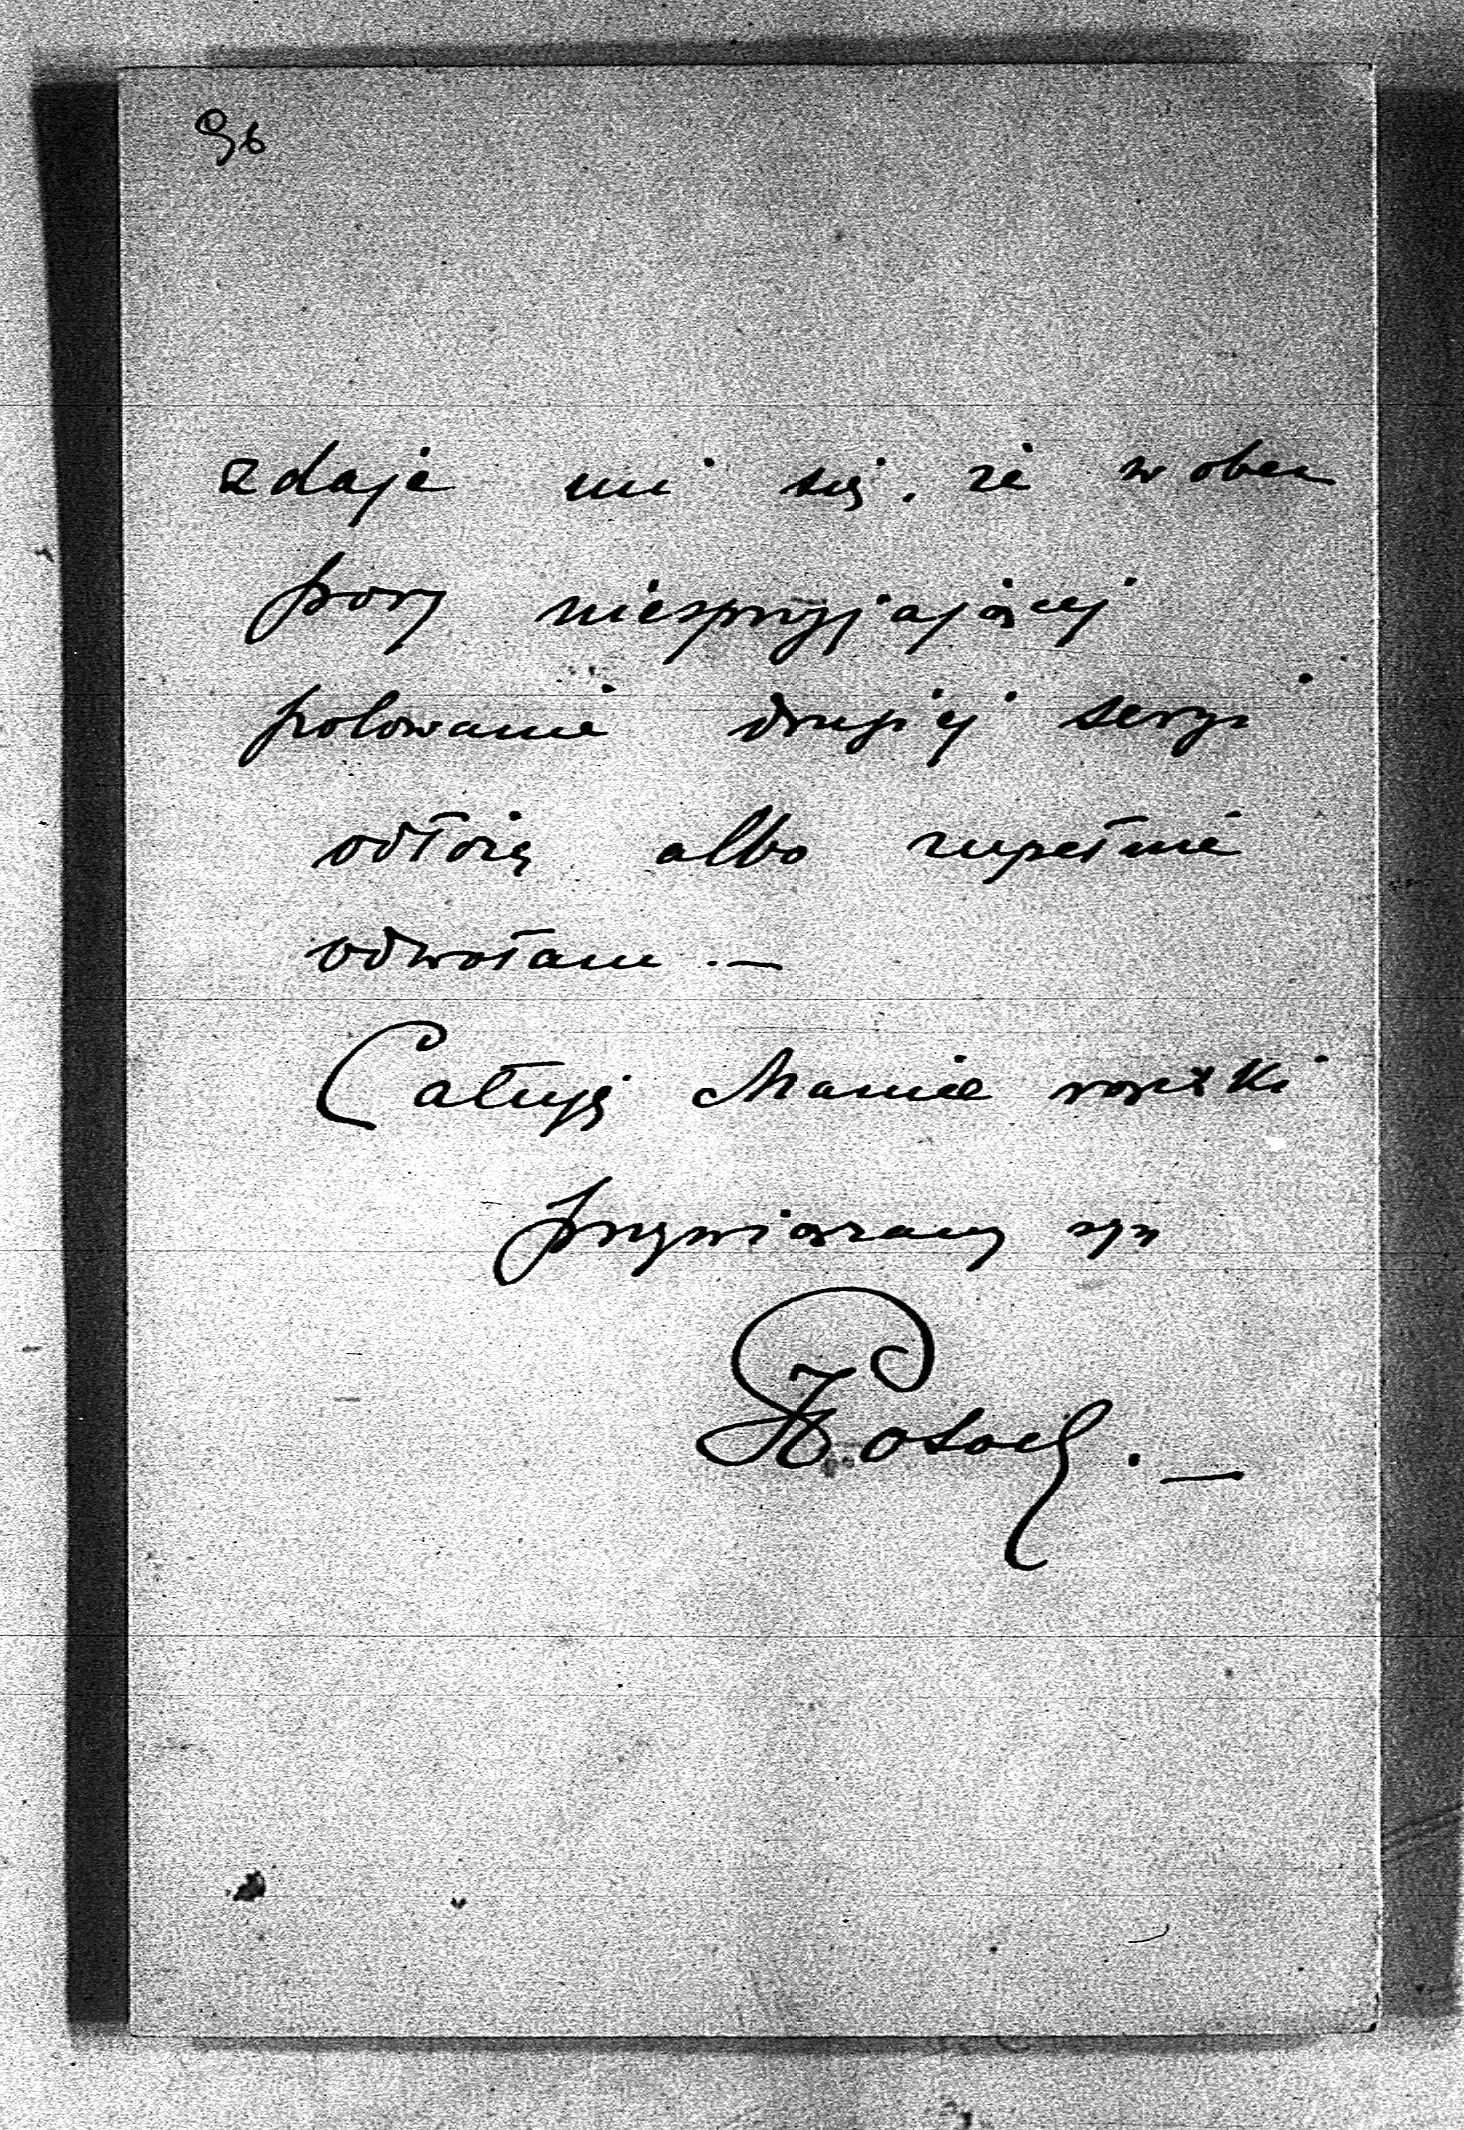 96
zdaje mi się, że wobec
pory niesprzyjającej
polowanie drugiej seryi
odłożę albo zupełnie
odwołam. —
Całuję Mamie rączki
przywiązany syn
RPotocki. —